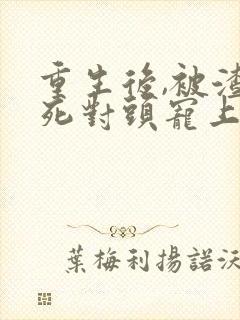 重生後,被渣
死對頭寵上
葉梅利揚諾沃